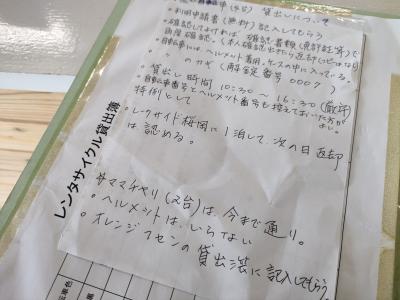 貸出しについて
・利用申請書(無料)記入してもらう
・確認してよければ、確認書類(免許証等)で
(本人確認出来たら返却
・自転車には、ヘルメット着用。ケースの中に入っている。
のカギ(解錠番号 0007)
・貸出し時間 10:30 ～ 16:30(厳守)
・自転車番号とヘルメット番号も控えておいた方が
よい。
特例として
・レークサイド桜岡に1泊して、次の日返却
は認める。
※ママチャリ(2台)は、今まで通り。
・ヘルメットは、いらない
・オレンジフセンの貸出簿に記入してもらう
レンタサイクル貸出簿